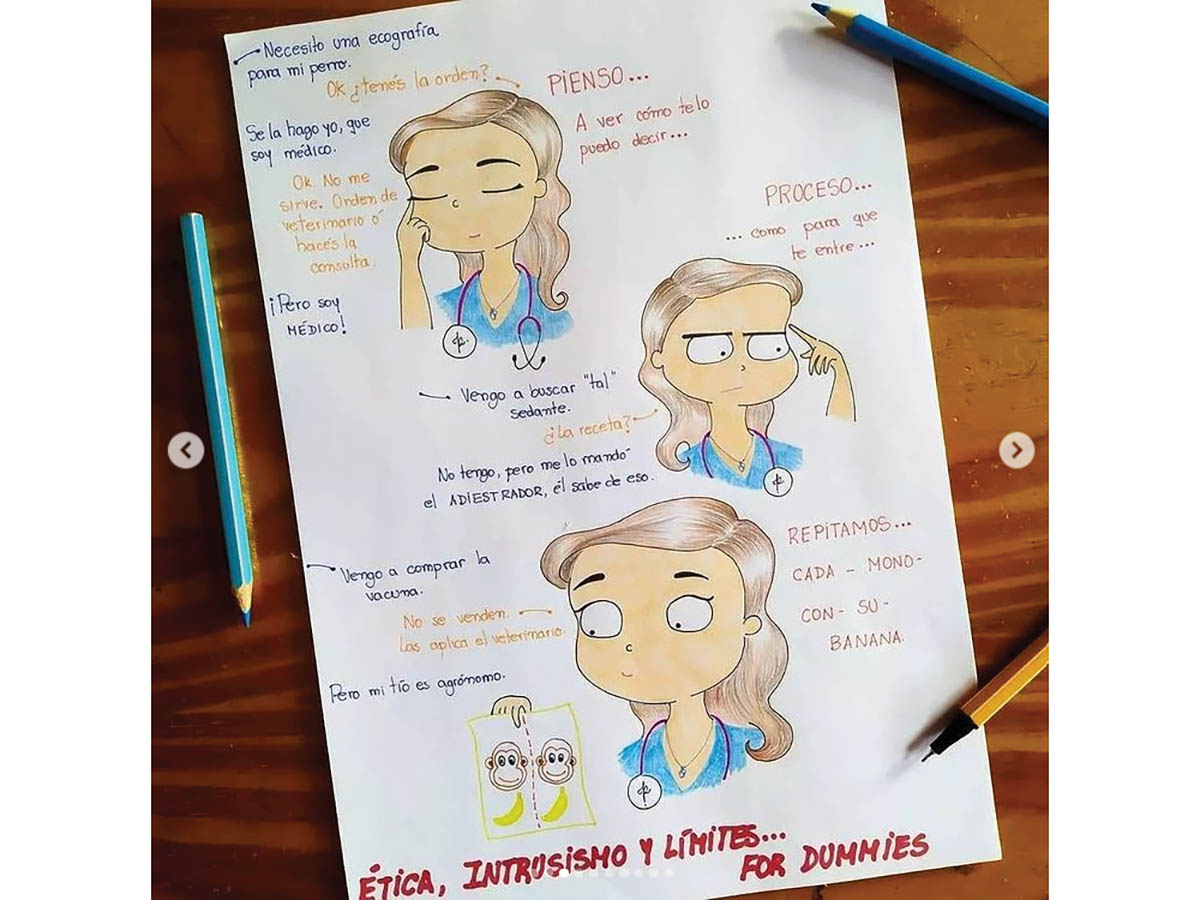 Necesito una ecografía
para mi perro.
Ok ¿tenés la orden?
PIENSO...
A ver cómo te lo
puedo decir...
Se la hago yo, que
soy médico.
Ok. No me
sirve. Orden de
veterinario ó
hacés la
consulta.
¡Pero soy
MÉDICO!
PROCESO...
... como para que
te entre...
Vengo a buscar "tal"
sedante.
¿La receta?
No tengo, pero me lo mandó
el ADIESTRADOR, él sabe de eso.
Vengo a comprar la
vacuna.
No se venden.
Las aplica el veterinario.
Pero mi tío es agrónomo.
REPITAMOS...
CADA - MONO-
CON- SU-
BANANA.
ÉTICA, INTRUSISMO Y LÍMITES...
FOR DUMMIES